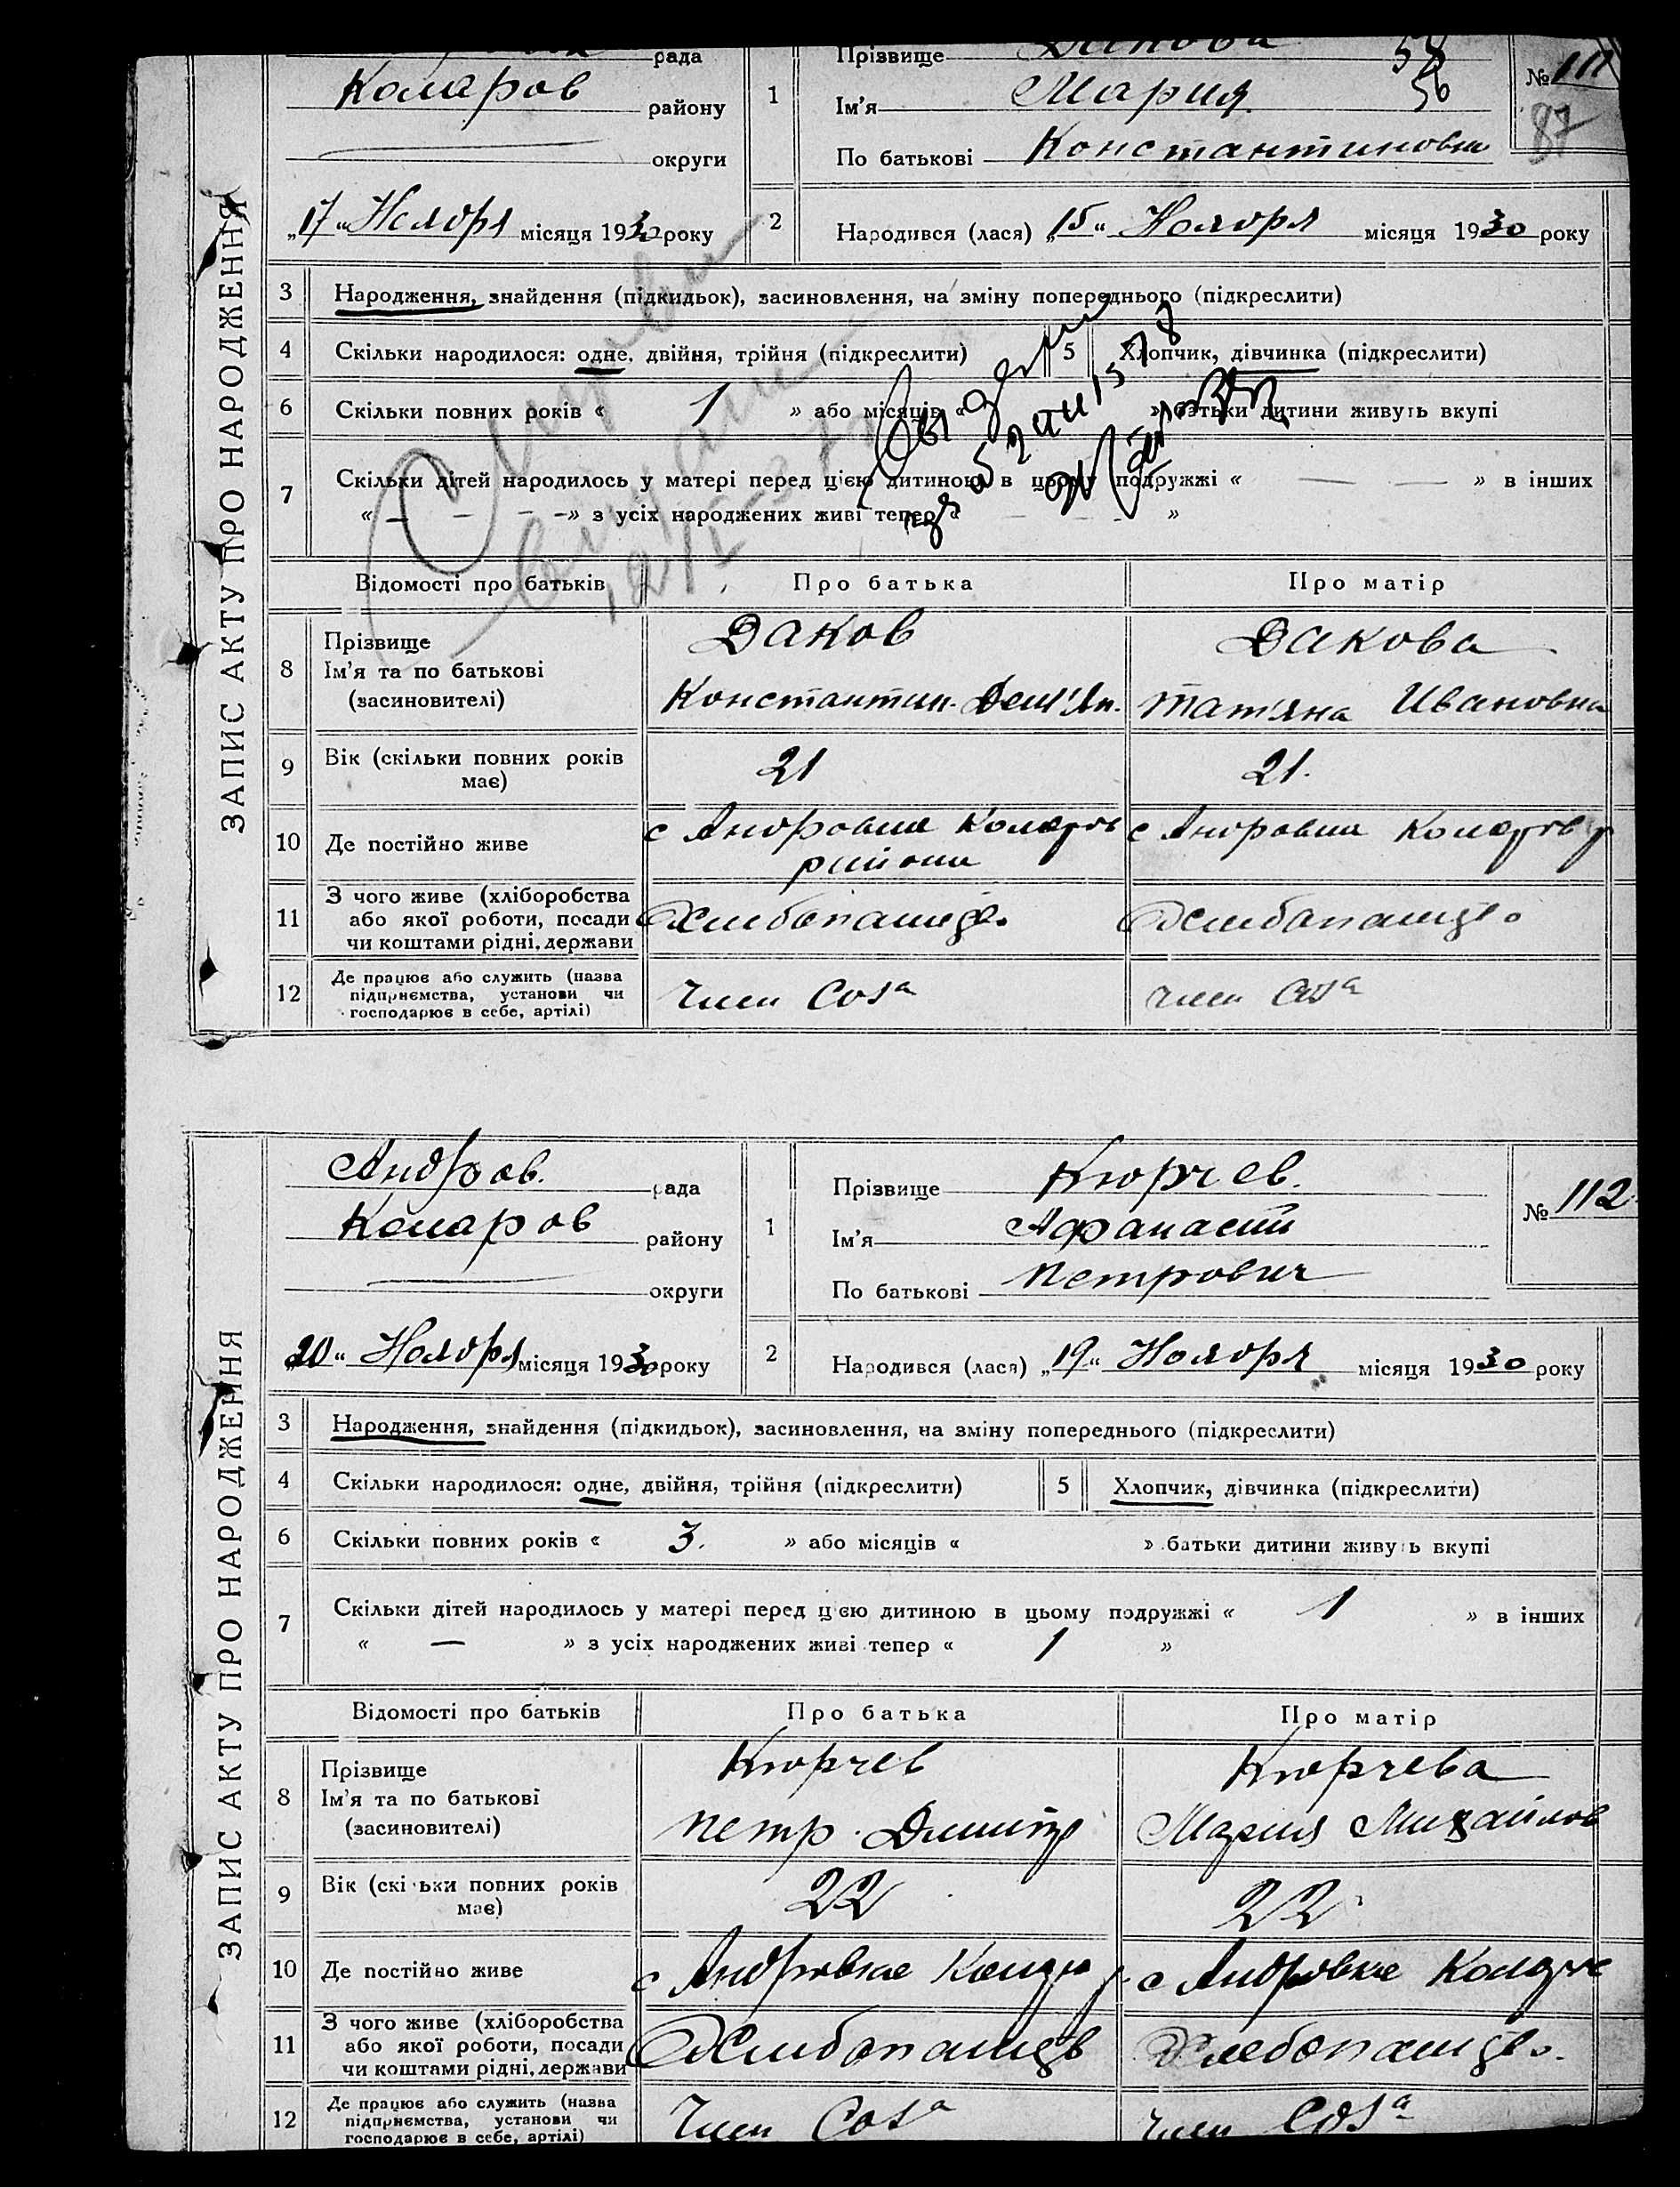 рада
Коларов району
округи
„17“ Ноября місяця 1930 року
ЗАПИС АКТУ ПРО НАРОДЖЕННЯ
1 Прізвище Дакова
Ім'я Мария
По батькові Константиновна
58
56
№ 111
87
2 Народився (лася) „15“ Ноября місяця 1930 року
3 Народження, знайдення (підкидьок), засиновлення, на зміну попереднього (підкреслити)
4 Скільки народилося: одне, двійня, трійня (підкреслити) 5 Хлопчик, дівчинка (підкреслити)
6 Скільки повних років « 1 » або місяців « » батьки дитини живуть вкупі
7 Скільки дітей народилось у матері перед цією дитиною в цьому подружжі « — — » в інших
« — — — » з усіх народжених живі тепер « — — »
Відомості про батьків Про батька Про матір
8 Прізвище Даков Дакова
Ім'я та по батькові Константин. Дем'ян. Татяна Ивановна
(засновителі)
9 Вік (скільки повних років має) 21 21.
10 Де постійно живе с Андровка Коларов района с Андровка Коларов р
11 З чого живе (хліборобства
або якої роботи, посади Хлебопашцев Хлебопашцев
чи коштами рідні, держави
12 Де працює або служить (назва
підприємства, установи чи Член Соза Член Соза
господарює в себе, артілі)
Андров. рада
Коларов району
округи
„20“ Ноября місяця 1930 року
ЗАПИС АКТУ ПРО НАРОДЖЕННЯ
1 Прізвище Кюрчев.
Ім'я Афанасий
По батькові Петрович
№ 112
2 Народився (лася) „19“ Ноября місяця 1930 року
3 Народження, знайдення (підкидьок), засиновлення, на зміну попереднього (підкреслити)
4 Скільки народилося: одне, двійня, трійня (підкреслити) 5 Хлопчик, дівчинка (підкреслити)
6 Скільки повних років « 3. » або місяців « » батьки дитини живуть вкупі
7 Скільки дітей народилось у матері перед цією дитиною в цьому подружжі « 1 » в інших
« — » з усіх народжених живі тепер « 1 »
Відомості про батьків Про батька Про матір
8 Прізвище Кюрчев Кюрчева
Ім'я та по батькові Петр. Дмитр Мария Михайлов
(засиновителі)
9 Вік (скільки повних років має) 22 22
10 Де постійно живе с Андровке Колар р. с Андровке Колар
11 З чого живе (хліборобства
або якої роботи, посади Хлебопашцев Хлебопашцев.
чи коштами рідні, держави
12 Де працює або служить (назва
підприємства, установи чи Член Соза Член Соза
господарює в себе, артілі)